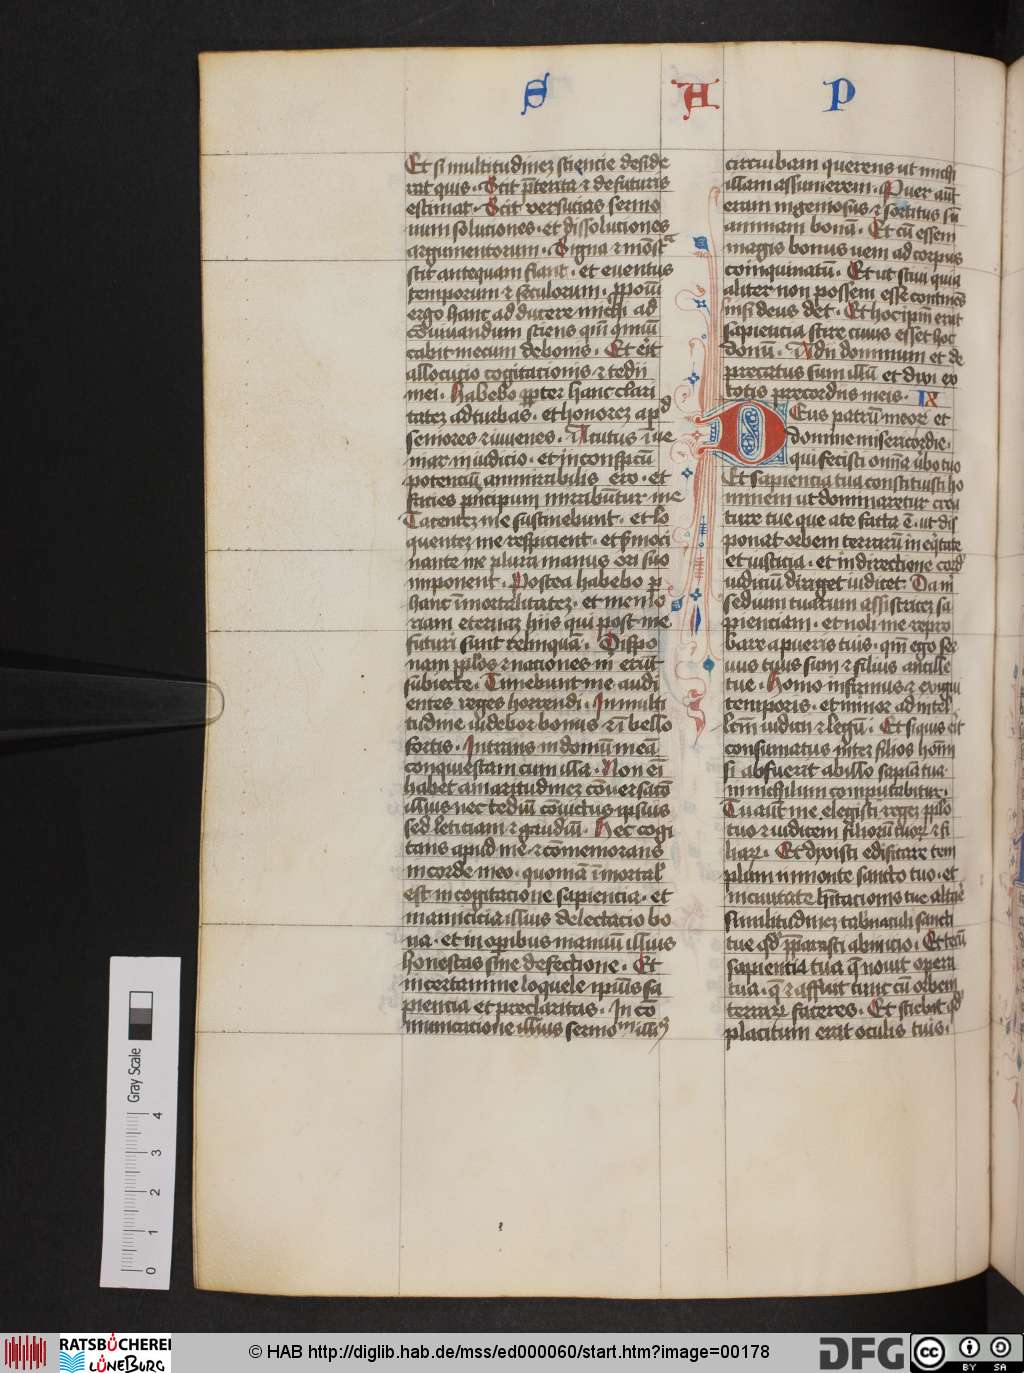 S A P
Et si multitudinez sciencie deside
rat quis. Scit p̄terita ⁊ de futuris
estimat. Scit versucias sermo
num soluciones. et dissoluciones
argumentorum. Signa ⁊ mōstᵃ
scit antequam fiant. et eventus
temporum ⁊ seculorum. p̄posui
ergo hanc adducere michi ad
cōuivandum sciens qm̄
cabit mecum de bonis. Et erit
allocucio cogitacionis ⁊ tedii
mei. Habebo ꝓpter hanc clari
tatez ad turbas. et honorez apd
seniores ⁊ iuvenes. Acutus īve
niar in iudicio. et in conspc̄tū
potenciū ammirabilis ero. et
facies p̄ncipum mirabūtur me
Tacentez me sustinebunt. et lo
quentez me respicient. et s̄moci
nante me plura manus ori suo
imponent. Postea habebo p̱
hanc īmortalitatez. et memo
riam eternaz hiis qui post me
futuri sunt relinquā. Dispo
nam pplōs ⁊ naciones m̄ erūt
subiecte. Timebunt me audi
entes reges horrendi. In multi
tudine videbor bonus ⁊ ī bello
fortis. Intrans in domū meā
conquiescam cum illa. Non ēi
habet amaritudinez cōversatō
illius nec tediū cōvictus ipsius
sed leticiam ⁊ gaudiū. Hec cogi
tans apud me. ⁊ cōmemorans
in corde meo. quoniā īmortal'
est in cogitacione sapiencia. et
in amicicia illius delectacio bo
na. et in operibus manuū illius
honestas sine defectione. Et
in certamine loquele ipius sa
piencia et preclaritas. In cō
municacione illius sermo
circuibam querens ut michi
illam assumerem. Puer aūt
eram ingeniosus ⁊ sortitus sū
animam bonā. Et cū essem
magis bonus veni ad corpus
coinquinatū. Et ut scivi quia
aliter non possem esse continēs
nisi deus det. Et hoc ipm̄ erat
sapiencia scire cuius esset hoc
donū. Adii dominum et de
precatus sum illū et dixi ex
totis precordiis meis. IX
Deus patrū meoꝝ et
domine misericordie.
qui fecisti omīa v̄bo tuo
Et sapiencia tua constituisti ho
minem ut dominaretur crea
ture tue que a te facta ē. ut dis
ponat orbem terrarū in eq̄tate
et iusticia. et in directione cord
iudiciū diriget iudicet Da m̄
sedium tuarum assistricez sa
pienciam. et noli me repro
bare a pueris tuis. qm̄ ego ser
vus tuus sum ⁊ filius ancille
tue. Homo infirmus ⁊ exigui
temporis. et minor ad intel
lcm̄ iudicii ⁊ legū. Et si quis erit
consumatus inter filios homī
si abfuerit ab illo sapiā tua
in nichilum computabitur.
Tu aūt me elegisti regez pplō
tuo ⁊ iudicem filiorū tuoꝝ ⁊ fi
liaꝝ. Et dixisti edificare tem
plum in monte sancto tuo. et
in civitate hītacionis tue altare
Similitudinez tab̄naculi sancti
tue qd̄ p̄parasti ab inicio. Et tecū
sapientia tua q̄ novit opera
tua. q̄ ⁊ affuit tunc cū orbem
terraꝝ faceres. Et sciebat qd
placitum erat oculis tuis.
Gray Scale
0 1 2 3 4
RATSBÜCHEREI
LÜNEBURG
© HAB http://diglib.hab.de/mss/ed000060/start.htm?image=00178
DFG
cc BY SA